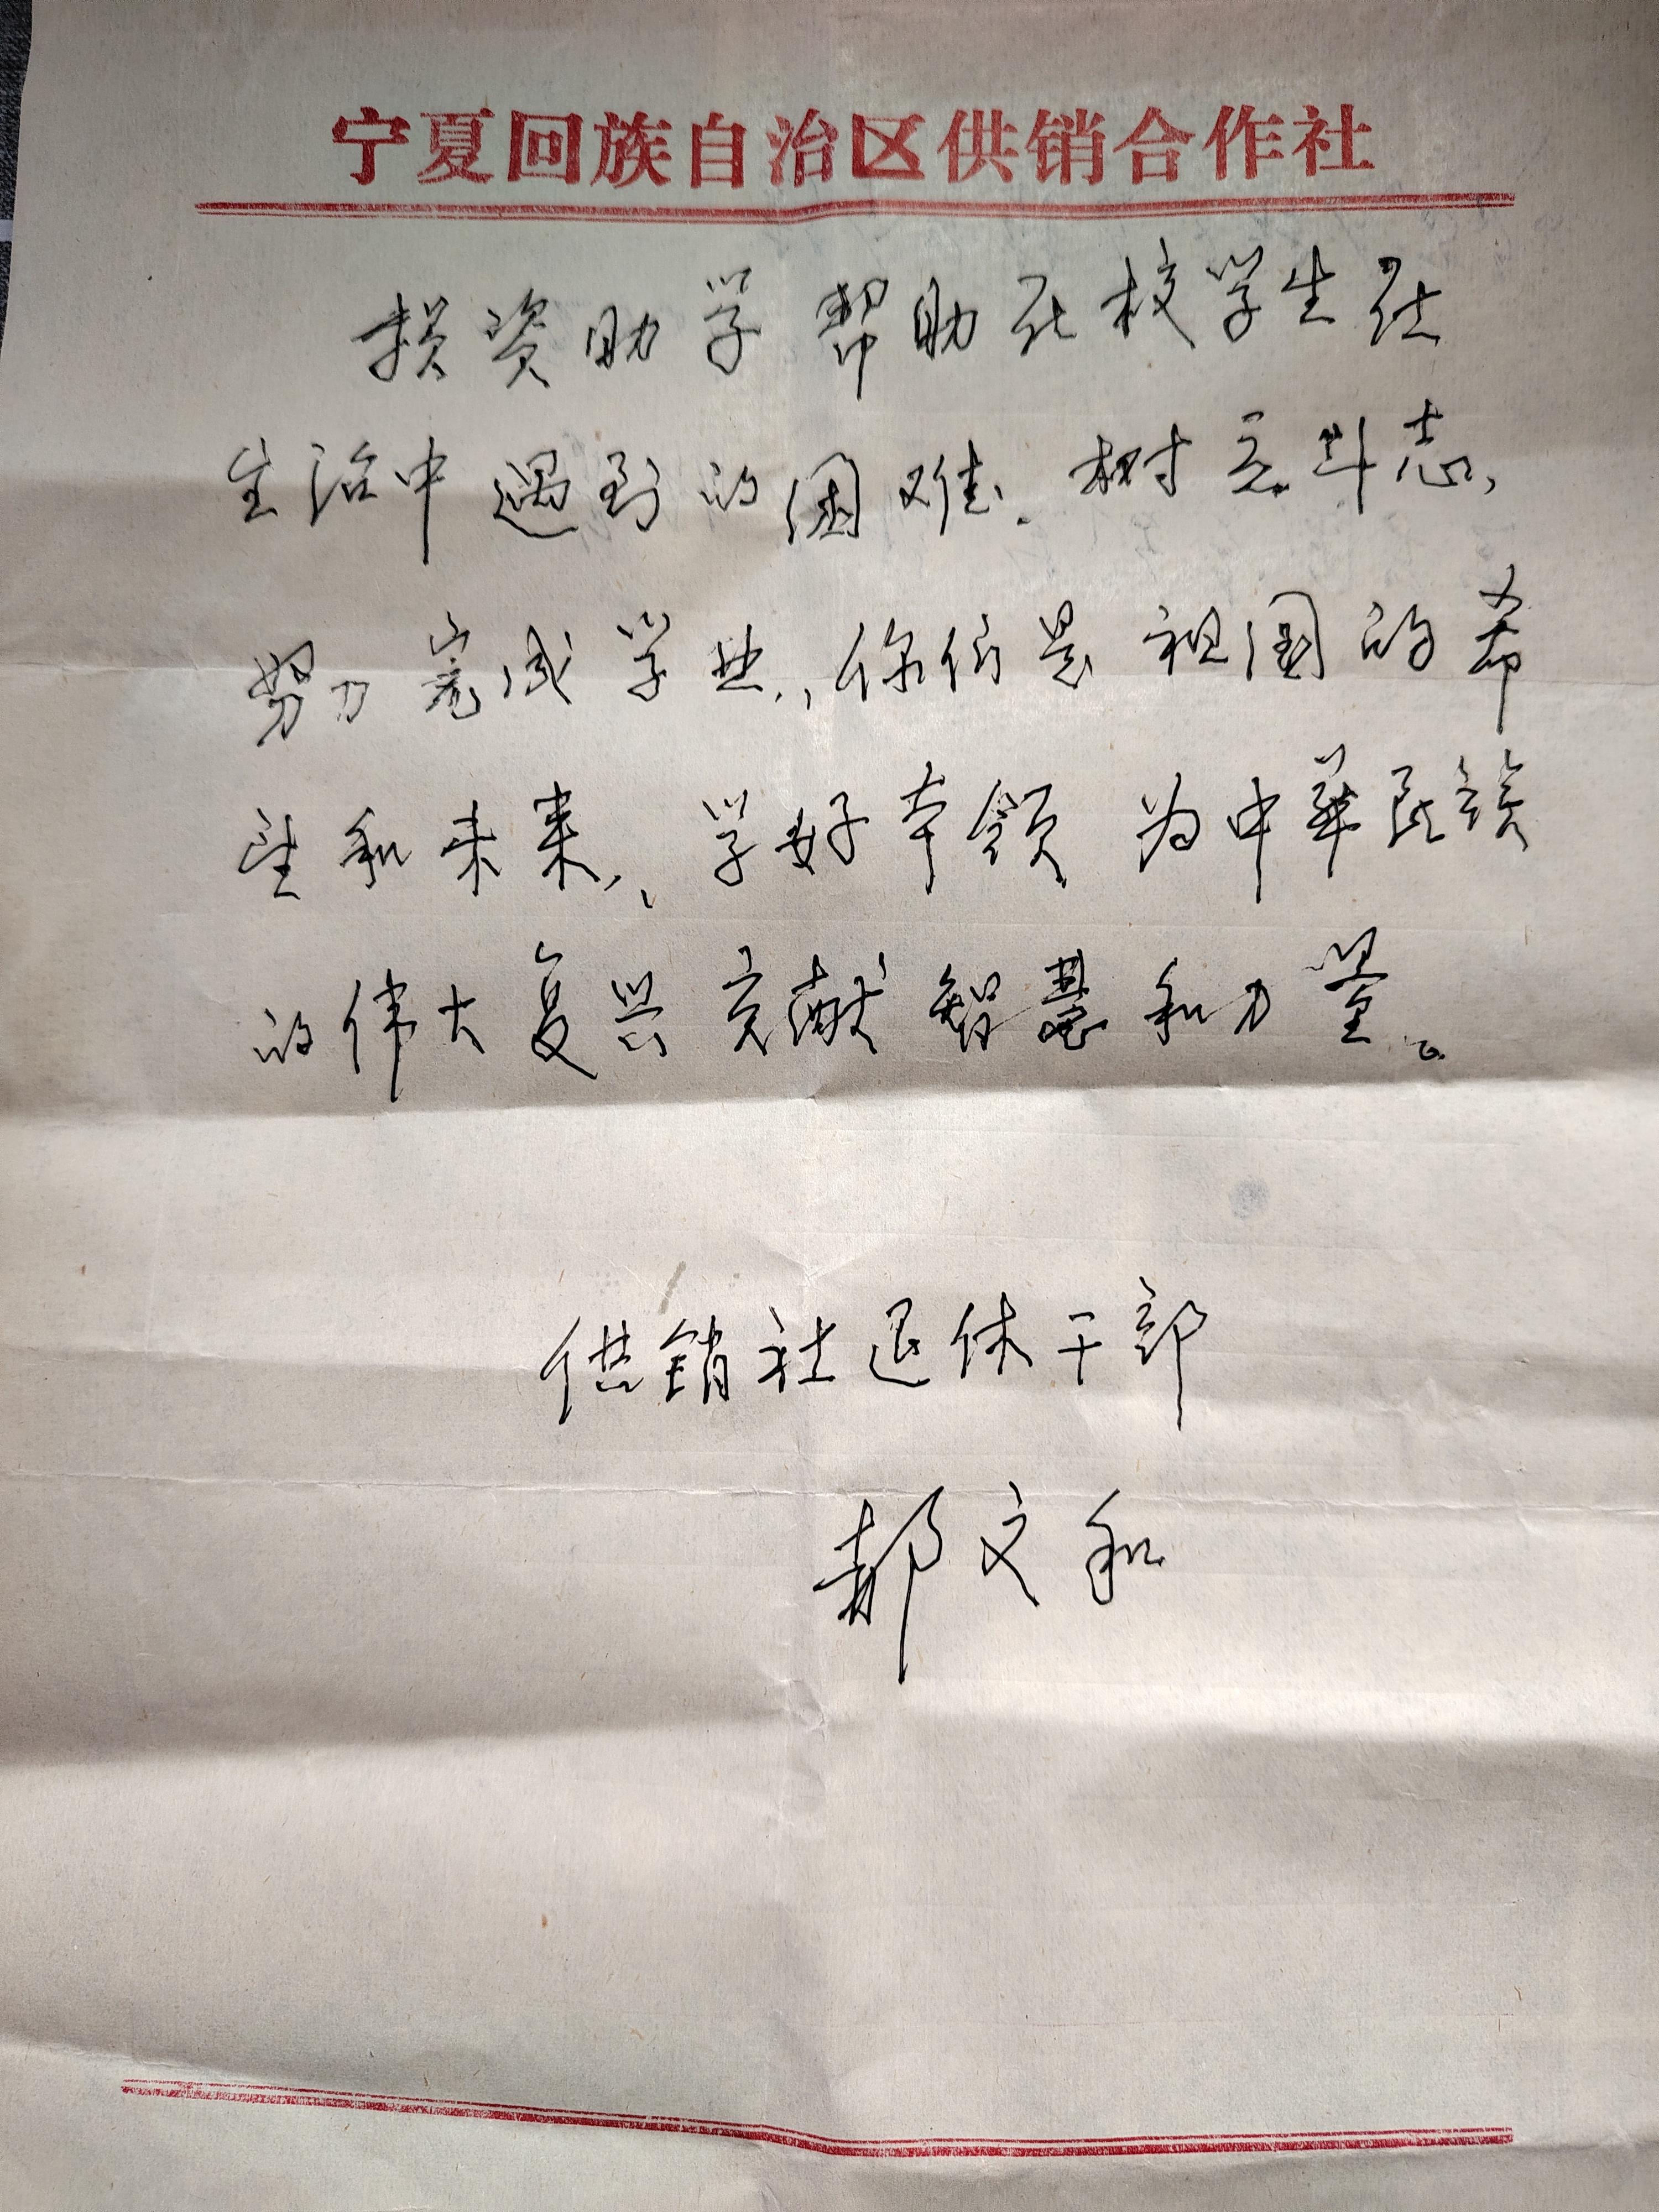 宁夏回族自治区供销合作社
损资助学 帮助在校学生在
生活中遇到的困难、树立斗志,
努力完成学业,你们是祖国的希
望和未来,学好本领 为中华民族
的伟大复兴贡献智慧和力量。
供销社退休干部
郝文和